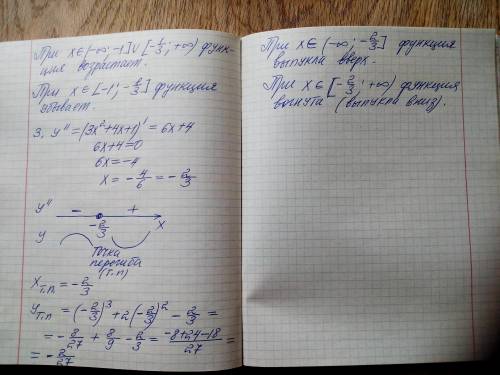 При x∈(-∞; -1]∪[-1/3; +∞) функ-
ция возрастает.
При x∈[-1; -2/3] функция
убывает.
3. y'' = (3x²+4x+1)' = 6x+4
6x+4=0
6x=-4
x = -4/6 = -2/3
y'' - +
-2/3 x
y
Точка
перегиба
(т.п)
xт.п = -2/3
yт.п = (-2/3)³ + 2(-2/3)² - 2/3 =
= -8/27 + 8/9 - 2/3 = (-8+24-18)/27 =
= -2/27
При x∈(-∞; -2/3] функция
выпукла вверх.
При x∈[-2/3; +∞) функция
вогнута (выпукла вниз).